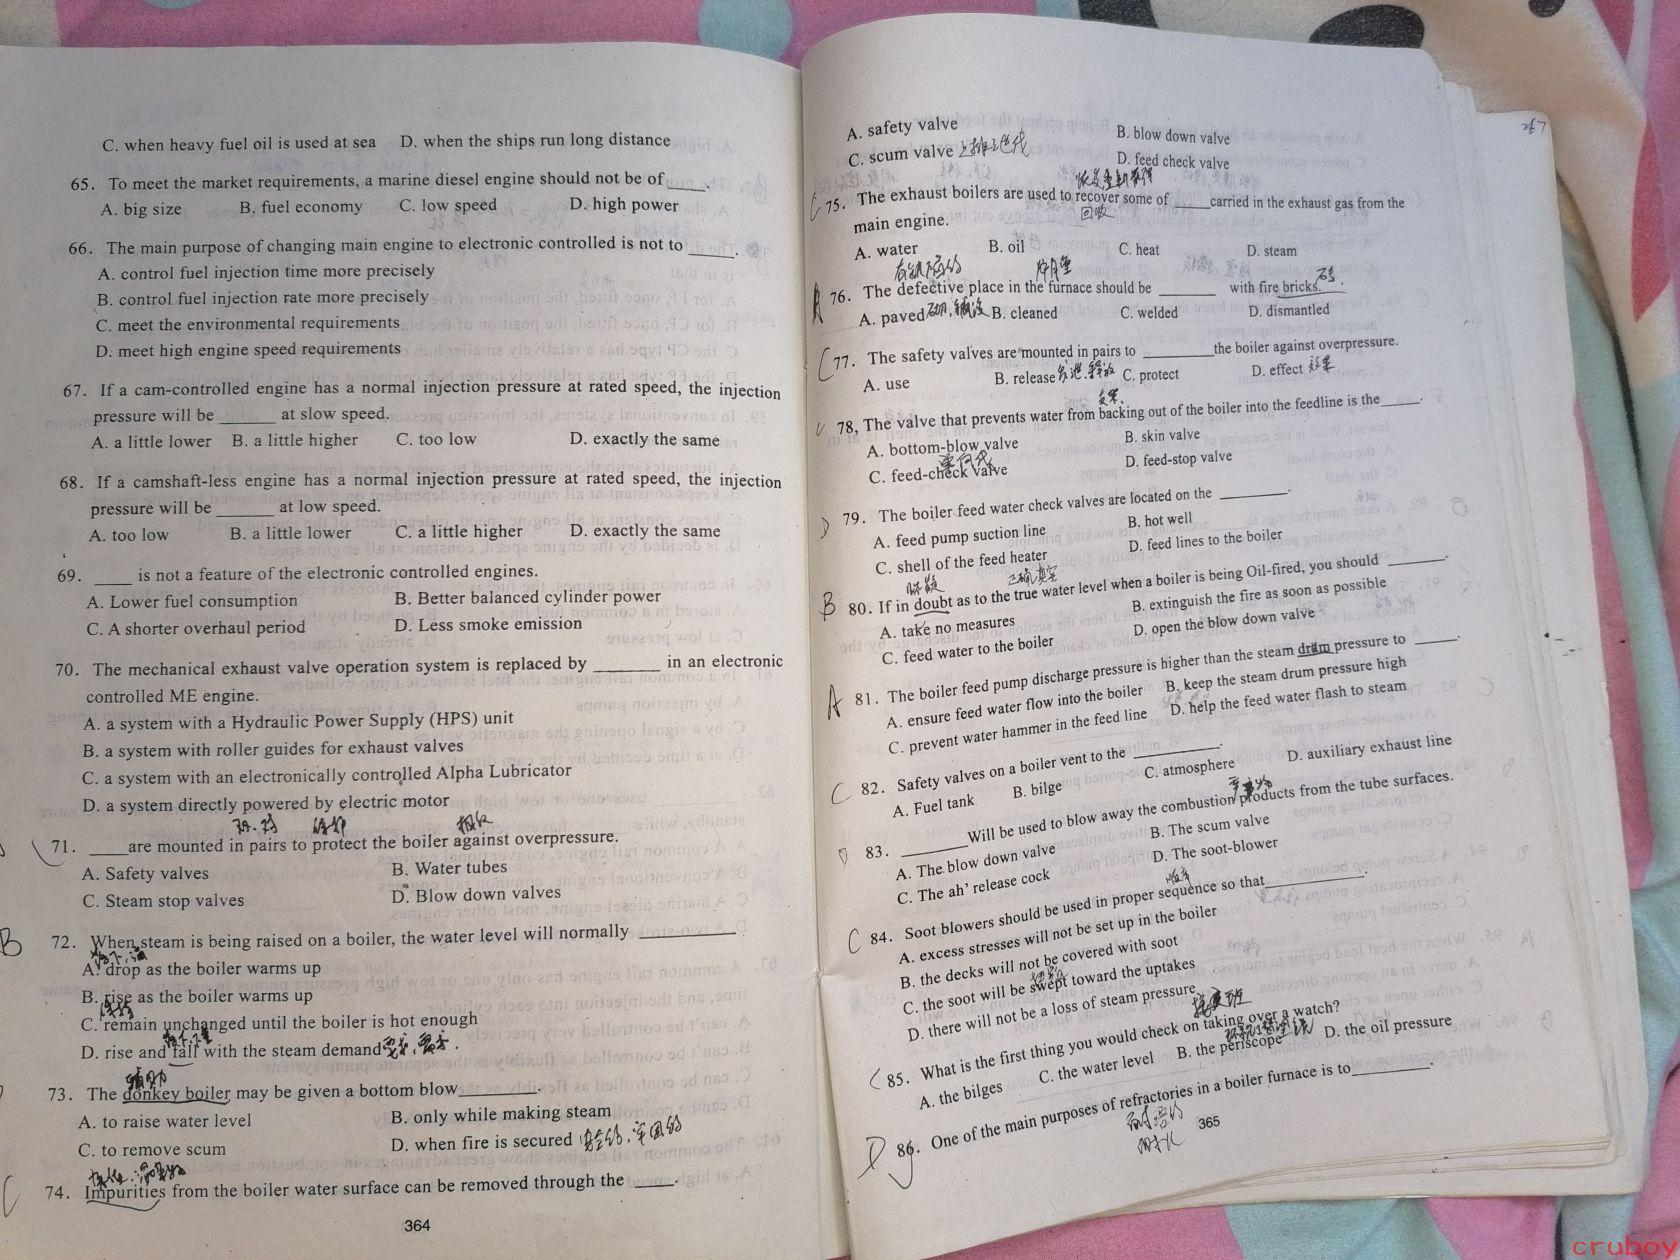 C. when heavy fuel oil is used at sea D. when the ships run long distance
65. To meet the market requirements, a marine diesel engine should not be of ____.
A. big size B. fuel economy C. low speed D. high power
66. The main purpose of changing main engine to electronic controlled is not to ____.
A. control fuel injection time more precisely
B. control fuel injection rate more precisely
C. meet the environmental requirements
D. meet high engine speed requirements
67. If a cam-controlled engine has a normal injection pressure at rated speed, the injection
pressure will be ____ at slow speed.
A. a little lower B. a little higher C. too low D. exactly the same
68. If a camshaft-less engine has a normal injection pressure at rated speed, the injection
pressure will be ____ at low speed.
A. too low B. a little lower C. a little higher D. exactly the same
69. ____ is not a feature of the electronic controlled engines.
A. Lower fuel consumption B. Better balanced cylinder power
C. A shorter overhaul period D. Less smoke emission
70. The mechanical exhaust valve operation system is replaced by ____ in an electronic
controlled ME engine.
A. a system with a Hydraulic Power Supply (HPS) unit
B. a system with roller guides for exhaust valves
C. a system with an electronically controlled Alpha Lubricator
D. a system directly powered by electric motor
71. ____are mounted in pairs to protect the boiler against overpressure.
A. Safety valves B. Water tubes
C. Steam stop valves D. Blow down valves
B 72. When steam is being raised on a boiler, the water level will normally ____.
A. drop as the boiler warms up
B. rise as the boiler warms up
C. remain unchanged until the boiler is hot enough
D. rise and fall with the steam demand
辅助
73. The donkey boiler may be given a bottom blow____.
A. to raise water level B. only while making steam
C. to remove scum D. when fire is secured
C 74. Impurities from the boiler water surface can be removed through the ____.
364
267
A. safety valve B. blow down valve
C. scum valve D. feed check valve
C 75. The exhaust boilers are used to recover some of ____carried in the exhaust gas from the
回收
main engine.
A. water B. oil C. heat D. steam
A 76. The defective place in the furnace should be ____ with fire bricks.
A. paved B. cleaned C. welded D. dismantled
C 77. The safety valves are mounted in pairs to ____the boiler against overpressure.
A. use B. release C. protect D. effect 效果
78, The valve that prevents water from backing out of the boiler into the feedline is the____.
A. bottom-blow valve B. skin valve
C. feed-check valve D. feed-stop valve
D 79. The boiler feed water check valves are located on the ____.
A. feed pump suction line B. hot well
C. shell of the feed heater D. feed lines to the boiler
B 80. If in doubt as to the true water level when a boiler is being Oil-fired, you should ____.
A. take no measures B. extinguish the fire as soon as possible
C. feed water to the boiler D. open the blow down valve
A 81. The boiler feed pump discharge pressure is higher than the steam drum pressure to ____.
A. ensure feed water flow into the boiler B. keep the steam drum pressure high
C. prevent water hammer in the feed line D. help the feed water flash to steam
C 82. Safety valves on a boiler vent to the ____.
A. Fuel tank B. bilge C. atmosphere D. auxiliary exhaust line
D 83. ____Will be used to blow away the combustion products from the tube surfaces.
A. The blow down valve B. The scum valve
C. The ah' release cock D. The soot-blower
C 84. Soot blowers should be used in proper sequence so that____.
A. excess stresses will not be set up in the boiler
B. the decks will not be covered with soot
C. the soot will be swept toward the uptakes
D. there will not be a loss of steam pressure
C 85. What is the first thing you would check on taking over a watch?
A. the bilges C. the water level B. the periscope D. the oil pressure
D 86. One of the main purposes of refractories in a boiler furnace is to____.
365
cruboy